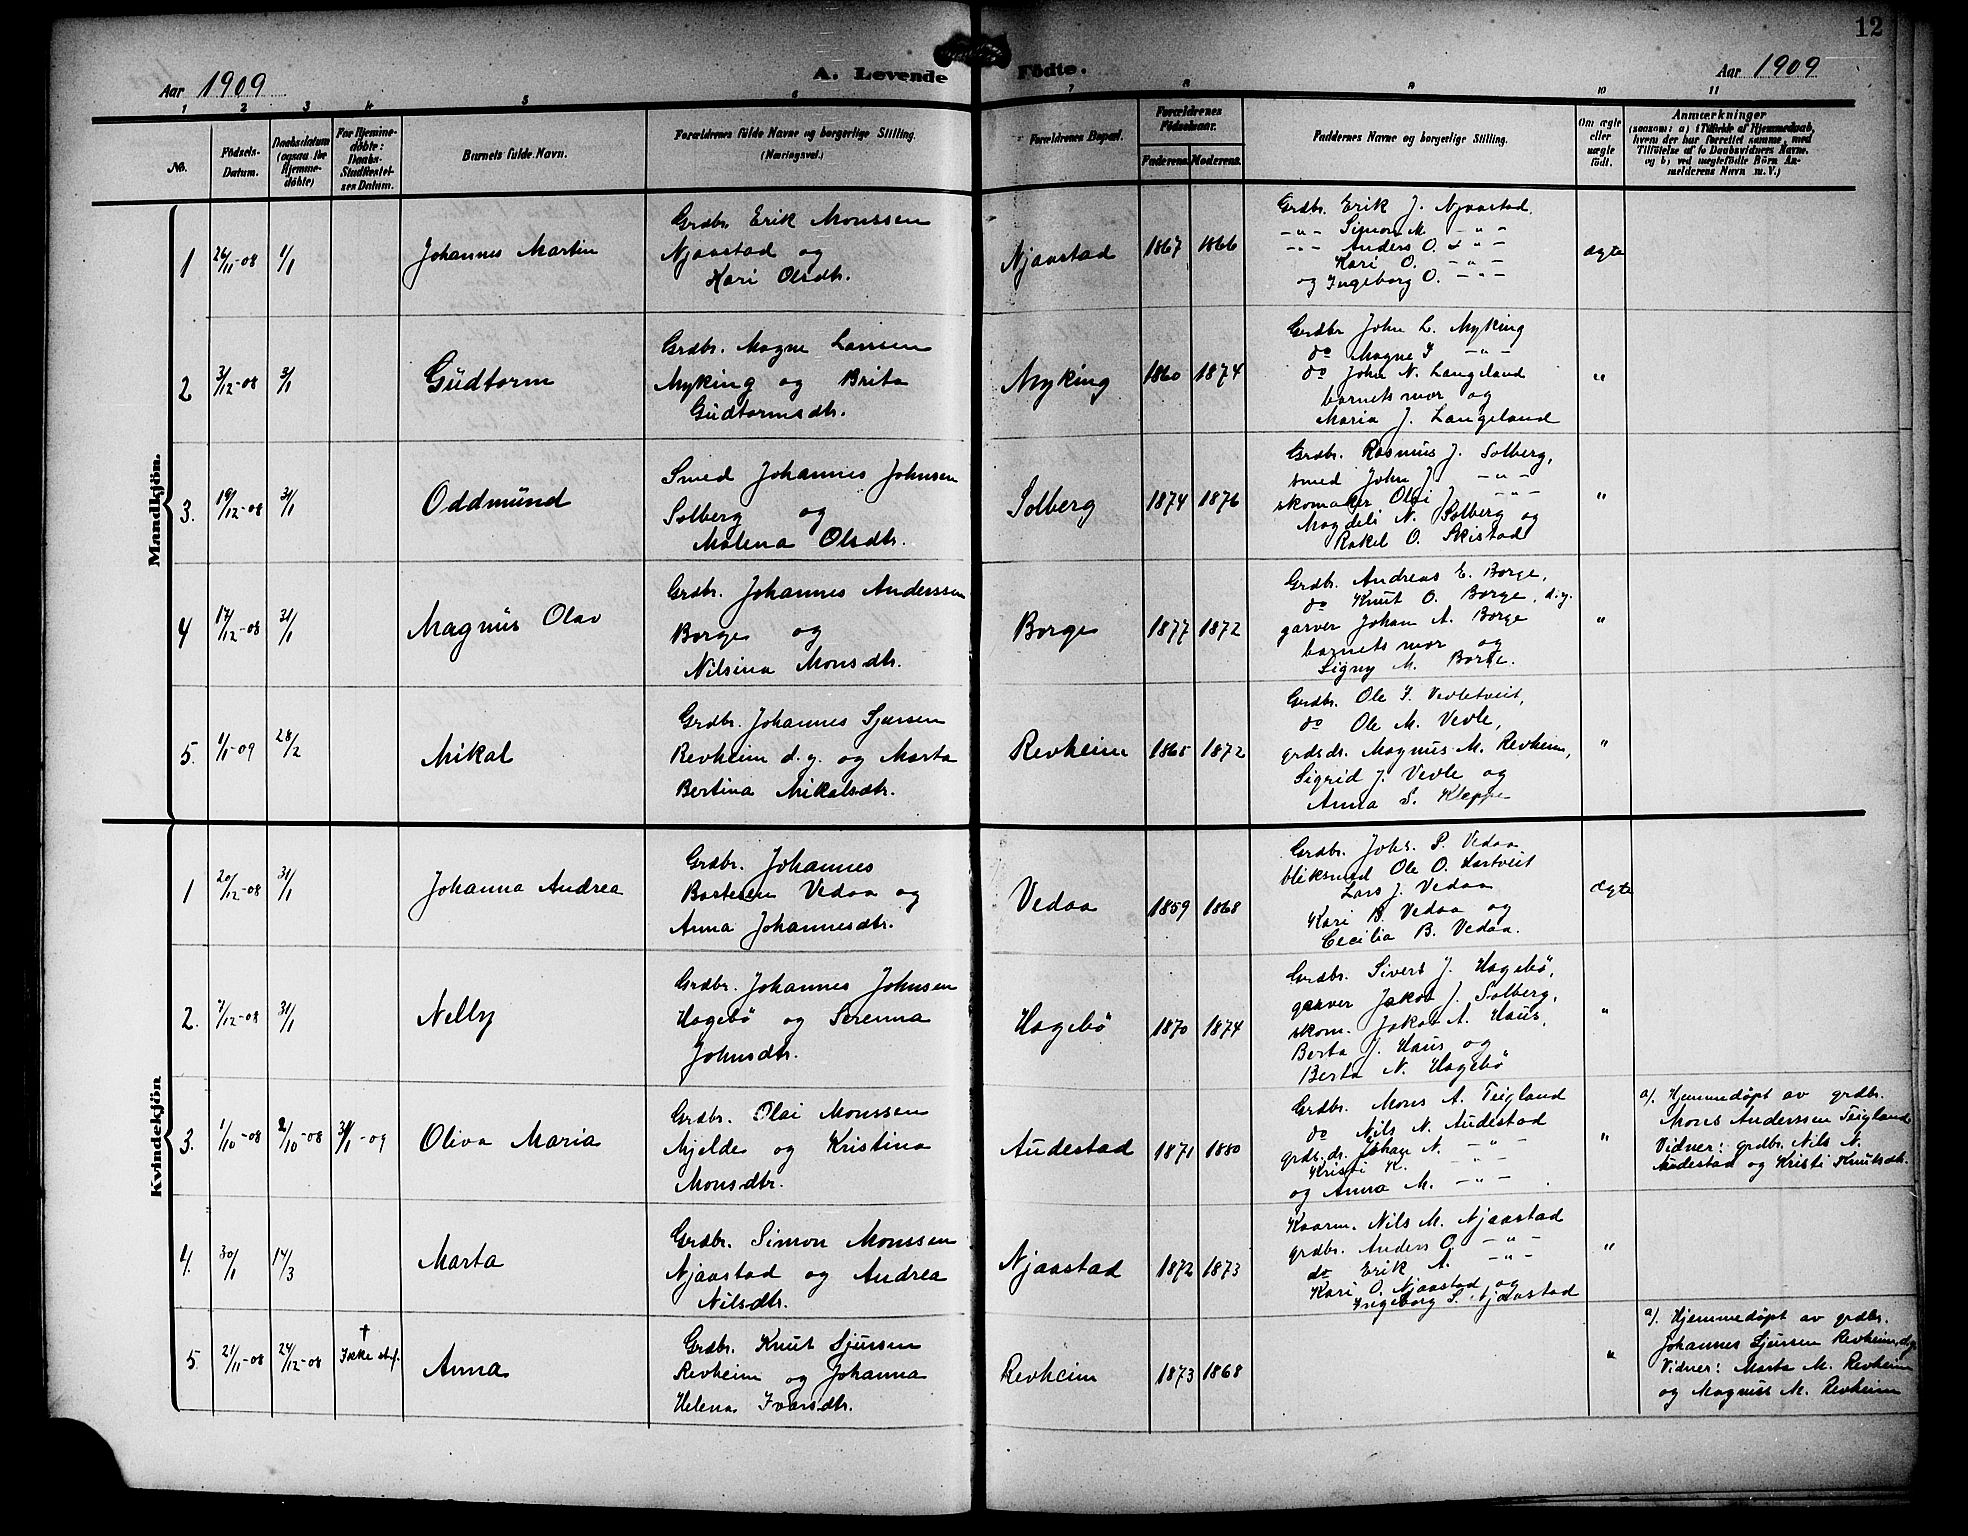 12
Aar 1909
A. Levende Födte.
Aar 1909
1 2 3 4 5 6 7 8 9 10 11
No.
Födsels-Datum.
Daabsdatum (ogsaa for Hjemmedöbte)
For Hjemmedöbte: Daabs-Stadfæstelses Datum.
Barnets fulde Navn.
Forældrenes fulde Navne og borgerlige Stilling. (Næringsvei.)
Forældrenes Bopæl.
Forældrenes Födselsaar.
Faderens. Moderens.
Faddernes Navne og borgerlige Stilling.
Om ægte eller uægte födt.
Anmærkninger
(saasom: a) i Tilfælde af Hjemmedaab,
hvem der har forrettet samme, med
Tilföielse af to Daabsvidners Navne,
og b) ved uægtefödte Börn An-
melderens Navn m. V.)
Mandkjön.
1 26/11-08 1/1 Johannes Martin
Grdbr. Erik Monssen
Njaastad og
Kari Olsdtr.
Njaastad 1867 1866
Grdbr. Erik J. Njaastad.
-"- Simon M. -"-
-"- Anders O. -"-
Kari O. -"-
og Ingeborg O. -"-
ægte
2 3/12-08 3/1 Gudtorm
Grdbr. Magne Larsen
Myking og Brita
Gudtormsdtr.
Myking 1860 1874
Grdbr John L. Myking
do Magne I -"-
do John N. Langeland
barnets mor og
Maria J. Langeland
"
3. 19/12-08 31/1 Oddmund
Smed Johannes Johnsen
Solberg og
Malena Olsdtr.
Solberg 1874 1876
Grdbr. Rasmus J. Solberg,
smed John J -"-
skomaker Olai J -"-
Magdeli N. Solberg og
Rakel O. Skistad
"
4 17/12-08 31/1 Magnus Olav
Grdbr. Johannes Anderssen
Borge og
Nilsina Monsdtr.
Borge 1877 1872
Grdbr. Andreas E. Borge,
do Knut O. Borge, d.y.
garver Johan A. Borge
barnets mor og
Signy M. Borge.
"
5. 1/1-09 28/2 Mikal
Grdbr. Johannes Sjursen
Revheim d.y. og Marta
Bertina Mikalsdtr.
Revheim 1865 1872
Grdbr. Ole I. Vevletveit,
do Ole M. Vevle,
grdsdr. Magnus M. Revheim,
Sigrid J. Vevle og
Anna S. Kleppe
"
Kvindekjön
1 20/12-08 31/1 Johanna Andrea
Grdbr. Johannes
Bertesen Vedaa og
Anna Johannesdtr.
Vedaa 1859 1868
Grdbr. Johs. P. Vedaa
bliksmed Ole O. Hartveit
Lars J. Vedaa
Kari B. Vedaa og
Cecilia B. Vedaa.
ægte
2. 7/12-08 31/1 Nelly
Grdbr. Johannes Johnsen
Hagebø og Serenna
Johnsdtr.
Hagebø 1870 1874
Grdbr. Sivert J. Hagebø,
garver Jakob J. Solberg,
skom. Jakob A. Haus,
Berta J. Haus og
Berta N. Hagebø
"
3. 1/10-08 2/10-08 31/1-09 Oliva Maria
Grdbr. Olai Monssen
Mjelde og Kristina
Monsdtr.
Audestad 1871 1880
Grdbr. Mons A. Teigland
do Nils N. Audestad
grdb.dr. Johan N. -"-
Kristi K. -"-
og Anna M. -"-
"
a). Hjemmedøpt av grdbr.
Mons Anderssen Teigland
Vidner: grdbr. Nils N.
Audestad og Kristi Knutsdtr.
4. 30/1 14/3 Marta
Grdbr. Simon Monssen
Njaastad og Andrea
Nilsdtr.
Njaastad 1872 1873
Kaarm. Nils M. Njaastad
grdbr. Anders O. -"-
do Erik A. -"-
Kari O. Njaastad og
Ingeborg S. Njaastad
"
5. 21/11-08 24/12-08 † Ikke st.f. Anna
Grdbr. Knut Sjursen
Revheim og Johanna
Helena Ivarsdtr.
Revheim 1873 1868
"
a). Hjemmedøpt av grdbr.
Johannes Sjursen Revheim, d.y.
Vidner: Marta M. Revheim
og Magnus M. Revheim